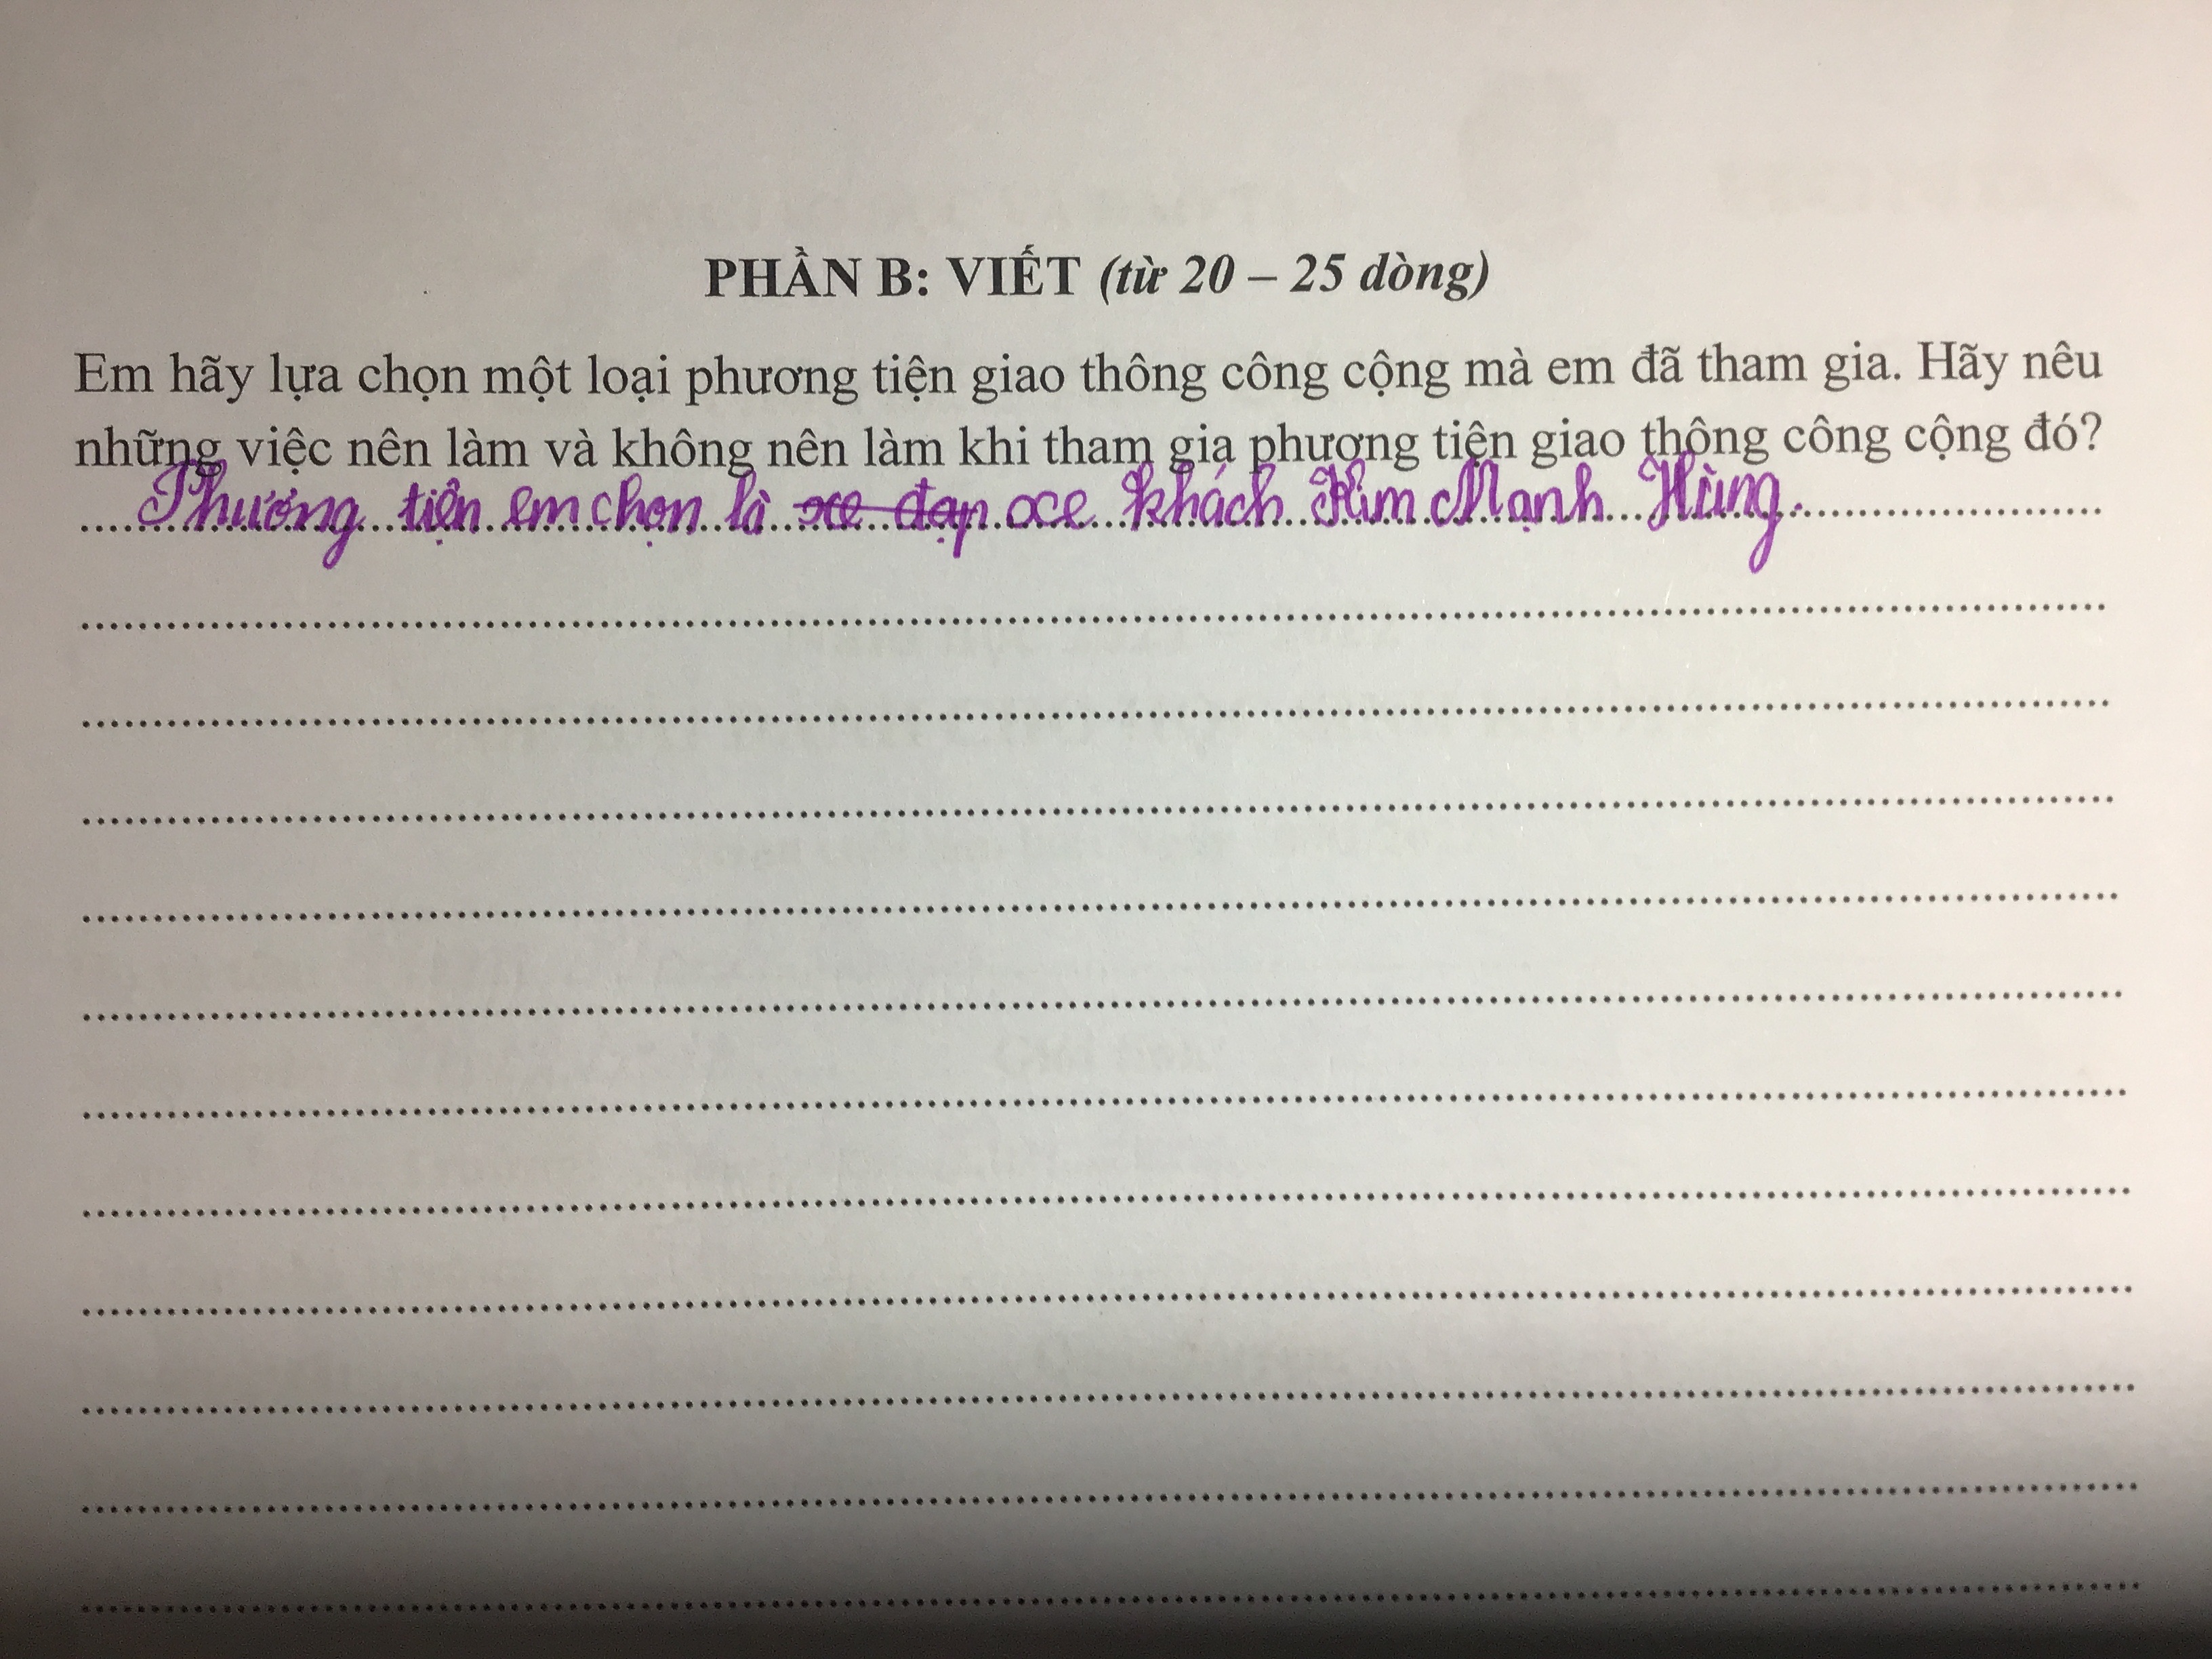 PHẦN B: VIẾT (từ 20 – 25 dòng)
Em hãy lựa chọn một loại phương tiện giao thông công cộng mà em đã tham gia. Hãy nêu
những việc nên làm và không nên làm khi tham gia phương tiện giao thông công cộng đó?
Phương tiện em chọn là xe đạp xe khách Kim Mạnh Hùng.